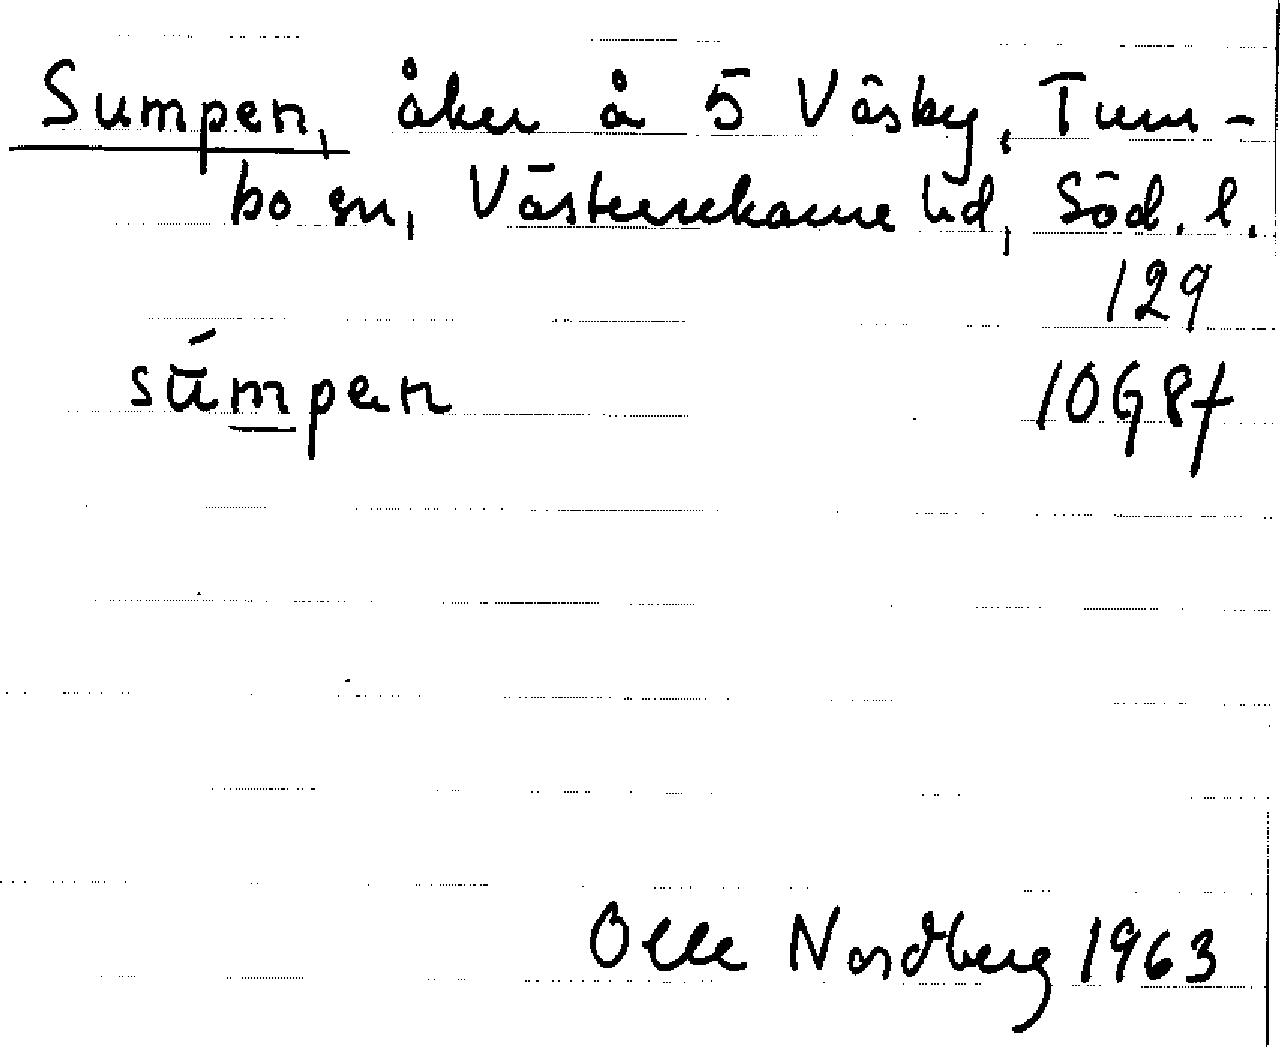 Sumpen, åker å 5 Väsby, Tum-
bo sn, Västerrekarne hd, Söd. l.
129
sū́mpen 10G8f
Olle Nordberg 1963